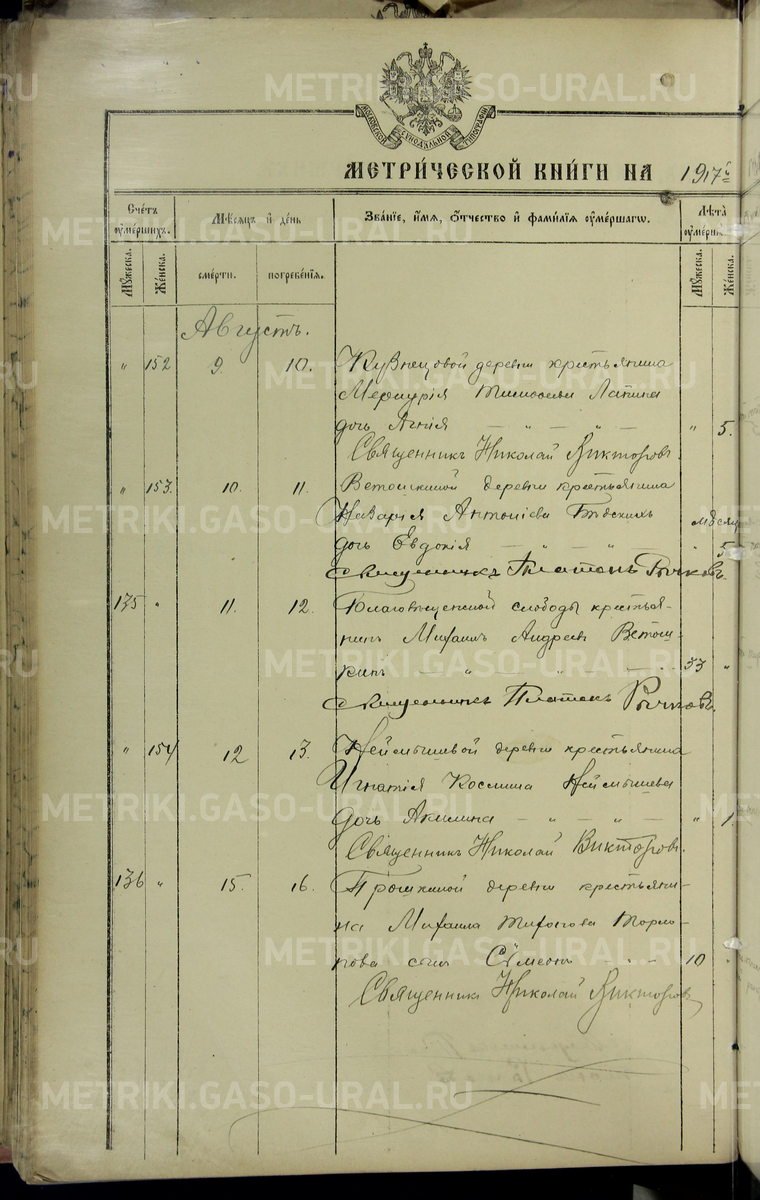 МОСКОВСКОЙ СѴНОДАЛЬНОЙ ТИПОГРАФІИ
МЕТРИ́ЧЕСКОЙ КНИ́ГИ НА 1917 г.
Сче́тъ ᲂу҆ме́ршихъ.
Мѣ́сяцъ и҆ де́нь
Зва́нїе, и҆́мѧ, ѻ҆́тчество и҆ фами́лїѧ ᲂу҆ме́ршагѡ.
Лѣ́та
Мꙋ́жеска.
Же́нска.
сме́рти.
погребе́нїѧ.
Мꙋ́жеска.
Же́нска.
Августъ.
" 152 9. 10. Кузнецовой деревни крестьянина
Меркурія Тимофеева Лапина
дочь Агнія — " — " — " 5.
Священникъ Николай Викторовъ
" 153. 10. 11. Ветошкиной деревни крестьянина
Назарія Антоніева Бѣдскихъ мѣсяц
дочь Евдокія — " — " — 5
Священникъ Платонъ Рычковъ
135 " 11. 12. Благовѣщенской слободы крестья-
нинъ Михаилъ Андреевъ Ветош-
кинъ — " — " — 33 "
священникъ Платонъ Рычковъ.
" 154 12 13. Неймышевой деревни крестьянина
Игнатія Космина Неймышева
дочь Акилина — " — " — " 1
Священникъ Николай Викторовъ.
136 " 15. 16. Прошкиной деревни крестьяни-
на Михаила
сынъ Сѵмеонъ - " - 10 "
Священникъ Николай Викторовъ
METRIKI.GASO-URAL.RU